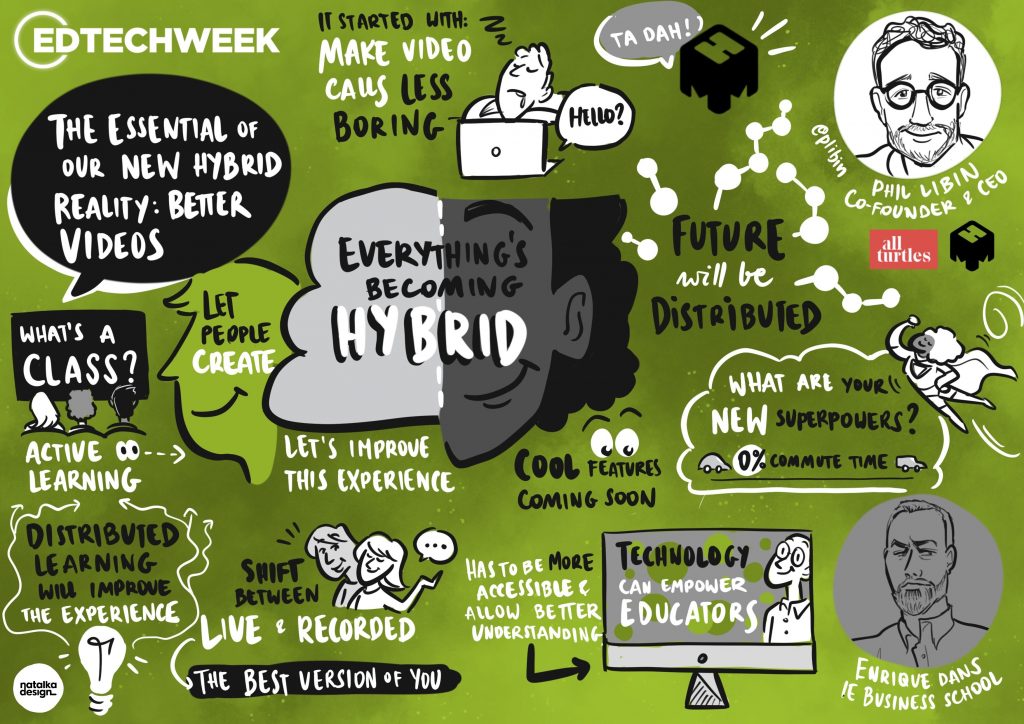 EDTECHWEEK
THE ESSENTIAL OF
OUR NEW HYBRID
REALITY: BETTER
VIDEOS
IT STARTED WITH:
MAKE VIDEO
CALLS LESS
BORING
HELLO?
TA DAH!
@plibin
PHIL LIBIN
CO-FOUNDER & CEO
all
turtles
FUTURE
will be
DISTRIBUTED
EVERYTHING'S
BECOMING
HYBRID
LET
PEOPLE
CREATE
LET'S IMPROVE
THIS EXPERIENCE
WHAT'S A
CLASS?
ACTIVE
LEARNING
WHAT ARE YOUR
NEW SUPERPOWERS?
0% COMMUTE TIME
COOL FEATURES
COMING SOON
DISTRIBUTED
LEARNING
WILL IMPROVE
THE EXPERIENCE
SHIFT
BETWEEN
LIVE & RECORDED
THE BEST VERSION OF YOU
HAS TO BE MORE
ACCESSIBLE &
ALLOW BETTER
UNDERSTANDING
TECHNOLOGY
CAN EMPOWER
EDUCATORS
ENRIQUE DANS
IE BUSINESS SCHOOL
natalka
design_